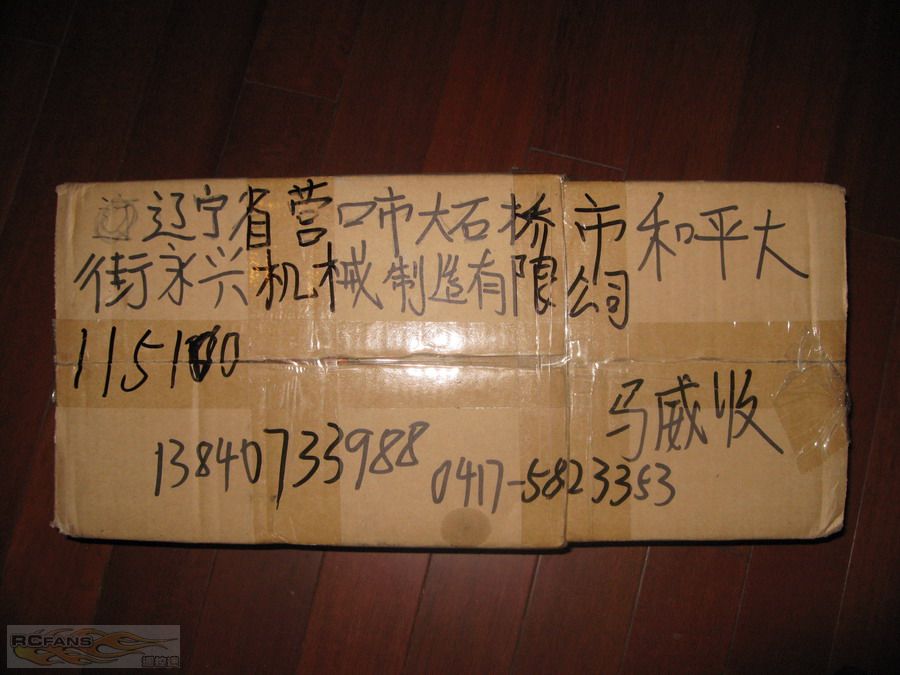 辽宁省营口市大石桥市和平大
街永兴机械制造有限公司
115100
马威收
13840733988
0417-5823353
RCFANS
遥控迷